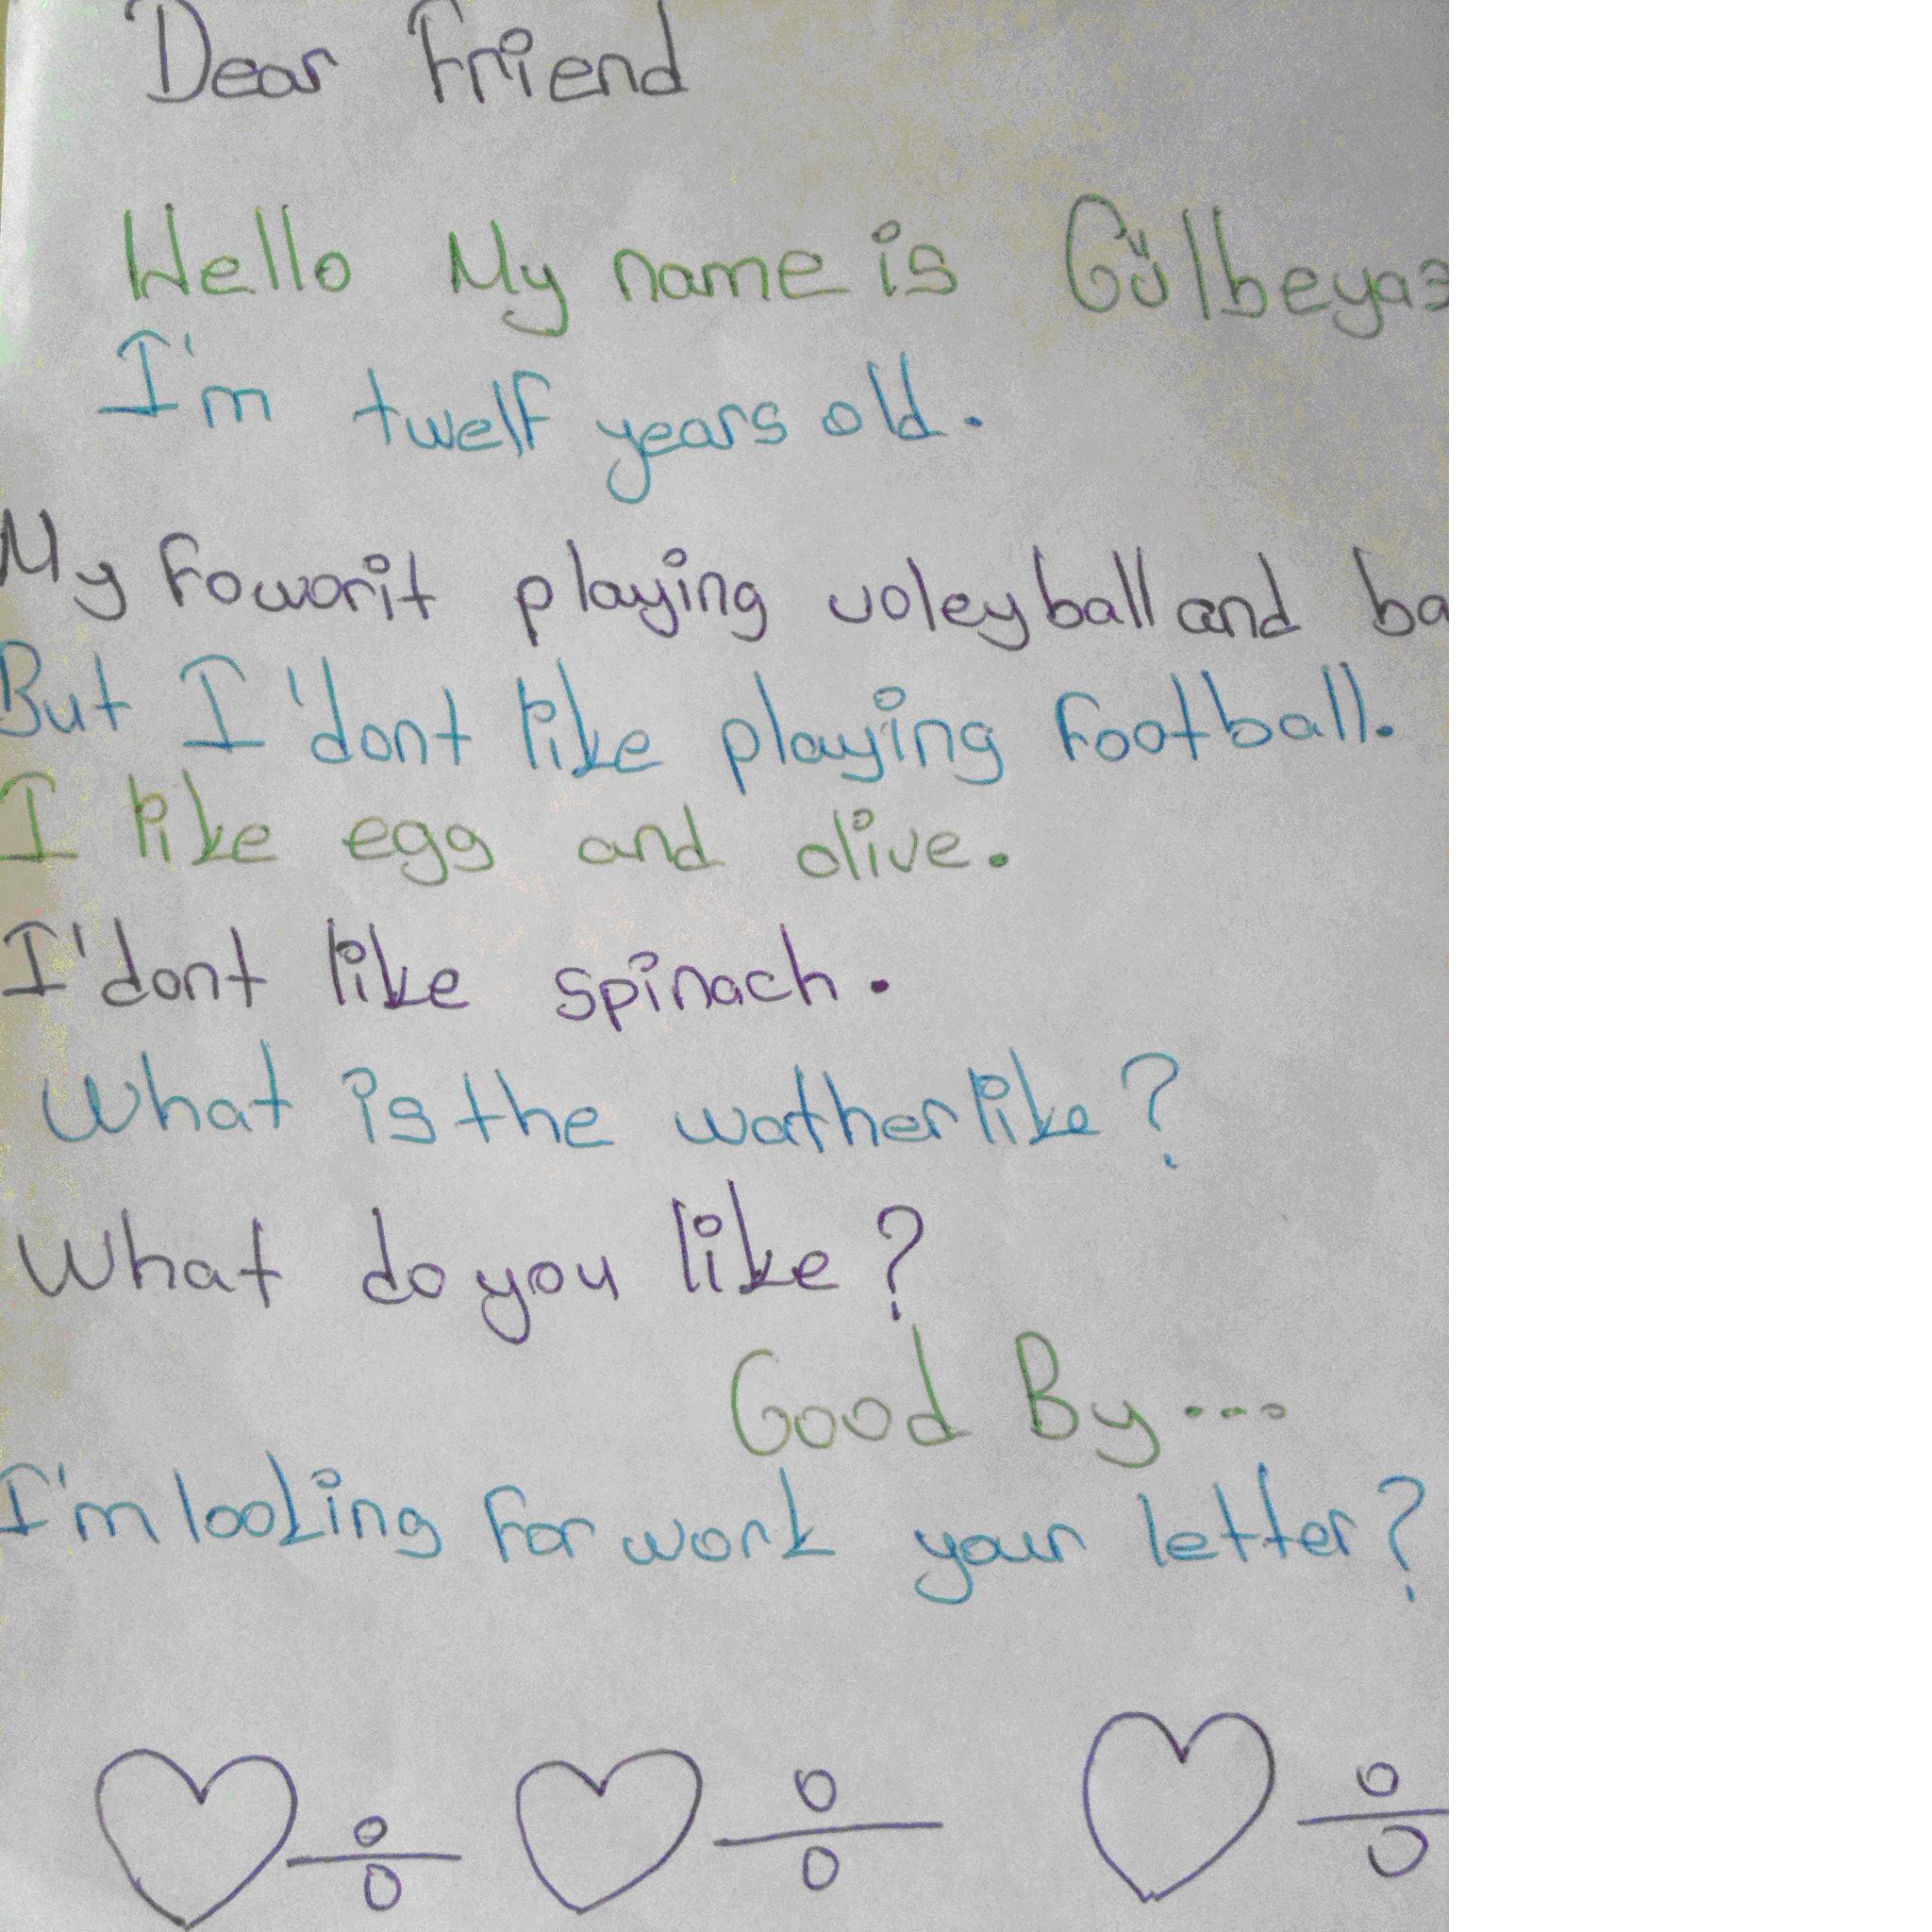 Dear Friend
Hello My name is Gülbeyaz
I'm twelf years old.
My foworit playing voleyball and ba
But I 'dont like playing football.
I like egg and olive.
I'dont like spinach.
What is the wather like?
What do you like?
Good By...
I'm looking for work your letter?